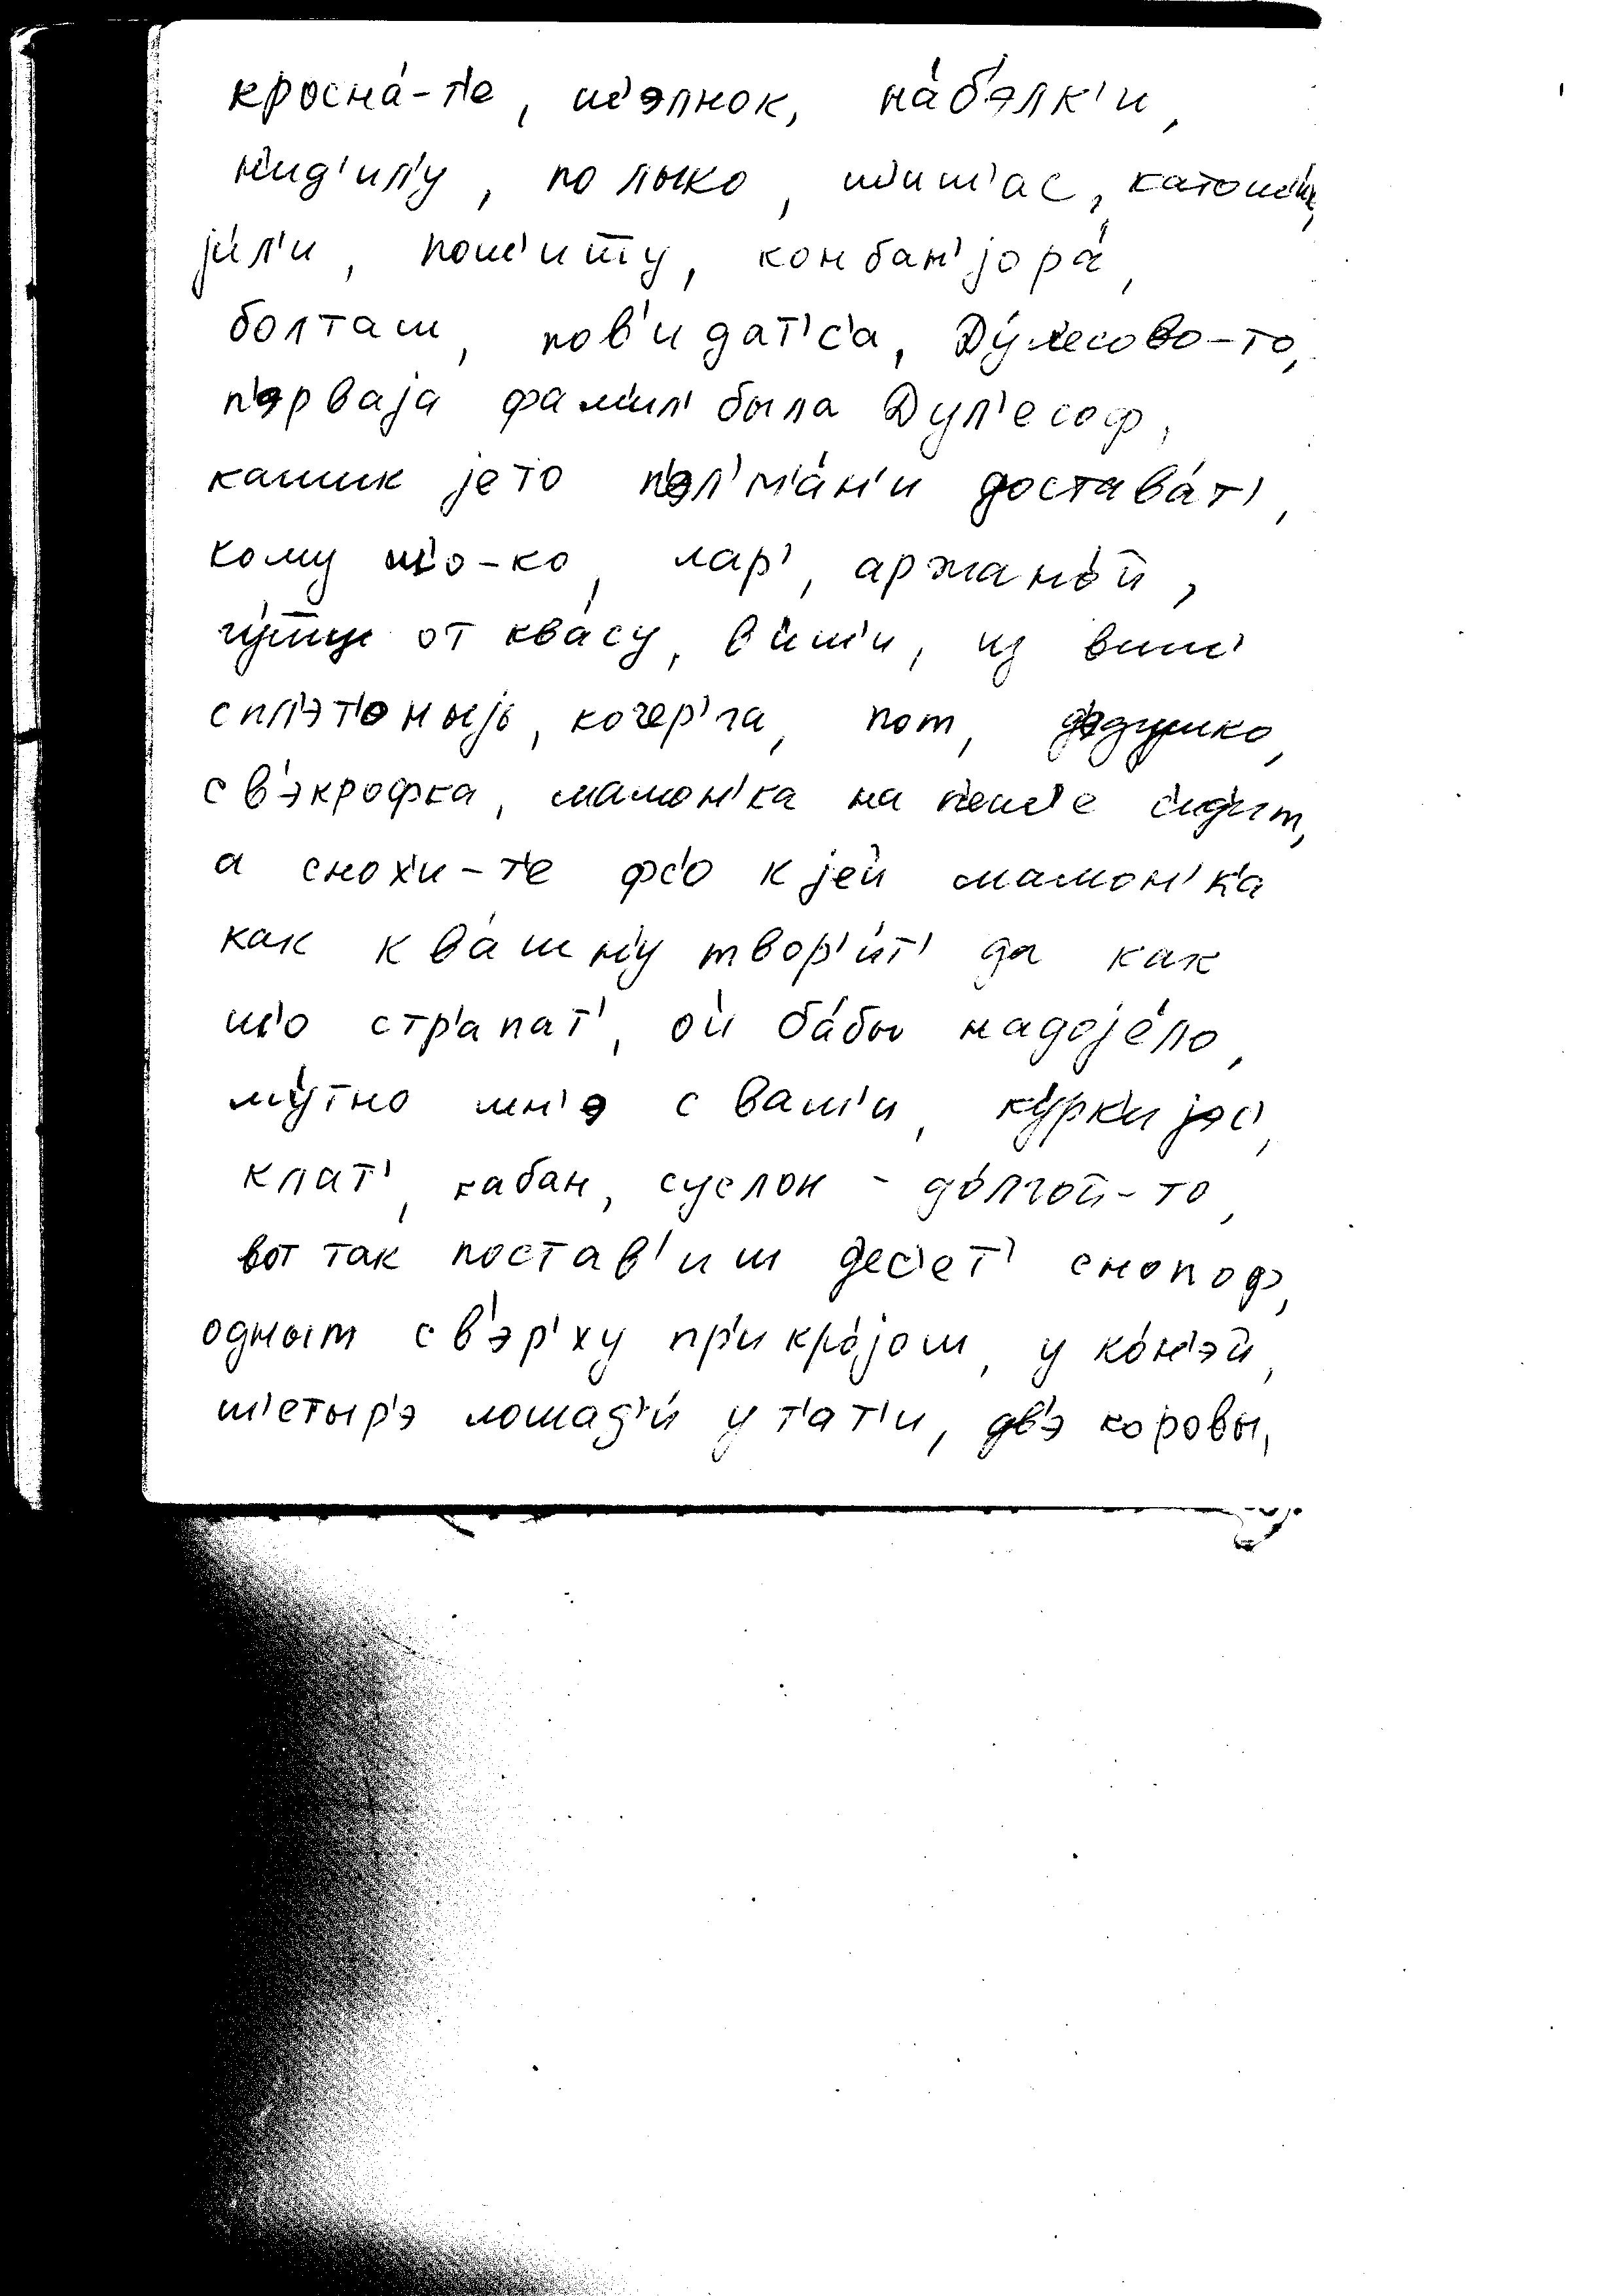 кросна́-т'е, ш'элнок, на́б'элк'и,
н'ид'ил'у, по лыко, ш'иш'ас,
јил'и, пош'иту, комбан'јора́,
болташ, пов'идат'с'а, Ду́лесово-то,
п'эрваја фам'ил' была Дул'есоф,
кашик јето п'эл'м'а́н'и достава́т',
кому ш'о-ко, лар', аржано́й,
от ква́су, в'иш'и, из виш'
спл'эт'оныјь, кочер'га, пот, д'эдушко,
св'экрофка, мамон'ка на п'еш'е с'ид'ит,
а снох'и-т'е фс'о к јей мамон'ка
как ква́шн'у твор'и́т' да как
ш'о стр'апат', ой ба́бы надоје́ло,
му́тно мн'э с ваш'и, ку́рк'и јэс',
клат', кабан, суслон - до́лгой-то,
вот так постав'иш дес'ет' снопоф,
одным св'эр'ху пр'икро́још, у ко́н'эй,
ш'етыр'э лошад'и́ у т'ат'и, дв'э коровы,